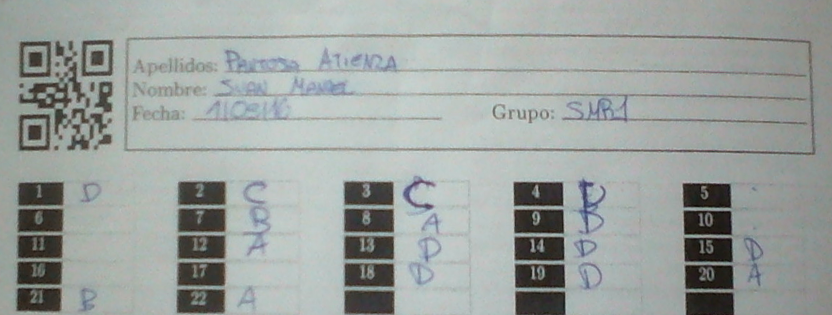 Apellidos: Pantoja Atienza
Nombre: Juan Manuel
Fecha: 1/03/16 Grupo: SMR1
1 D 2 C 3 C 4 D 5
6 7 B 8 A 9 D 10
11 12 A 13 D 14 D 15 D
16 17 18 D 19 D 20 A
21 B 22 A